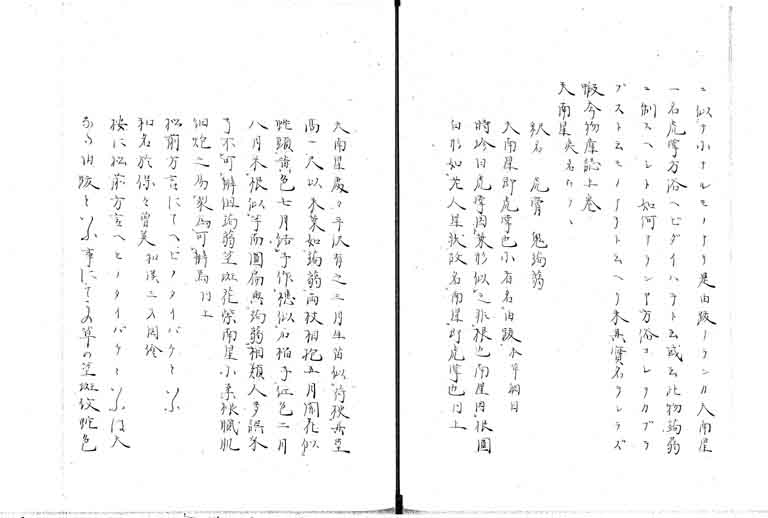 ニ似テ小ナルモノナリ是由跋ナランカ天南星
一名虎掌方俗ヘビダイハチト云或云此物蒟蒻
ニ制スヘシト如何アランヤ方俗コレヲカブラ
ブスト云モノナリト云ヘリ未其實名ヲシラズ
蝦夷物産誌上巻
天南星夷名ラウラウ
釈名 虎膏 鬼蒟蒻
天南星即虎掌也小者名由跋 本草綱目
時珍曰虎掌因葉形似之非根也南星因根圓
白形如老人星状故名南星即虎掌也 同上
天南星處々平沢有之三月生苗似荷梗其莖
高一尺以来葉如蒟蒻両枝相抱五月開花似
蛇頭黄色七月結子作穂似石榴子紅色二月
八月采根似芋而圓扁與蒟蒻相類人多誤采
了不可辨但蒟蒻莖斑花紫南星小柔根膩肌
細炮之易裂為可辨爾 同上
松前方言にてヘビノタイハチと云
和名於保々曽美 和漢三才圖絵
按に松前方言ヘヒノタイハチと云は天
由跋と云事にて此草の莖斑紋蛇色